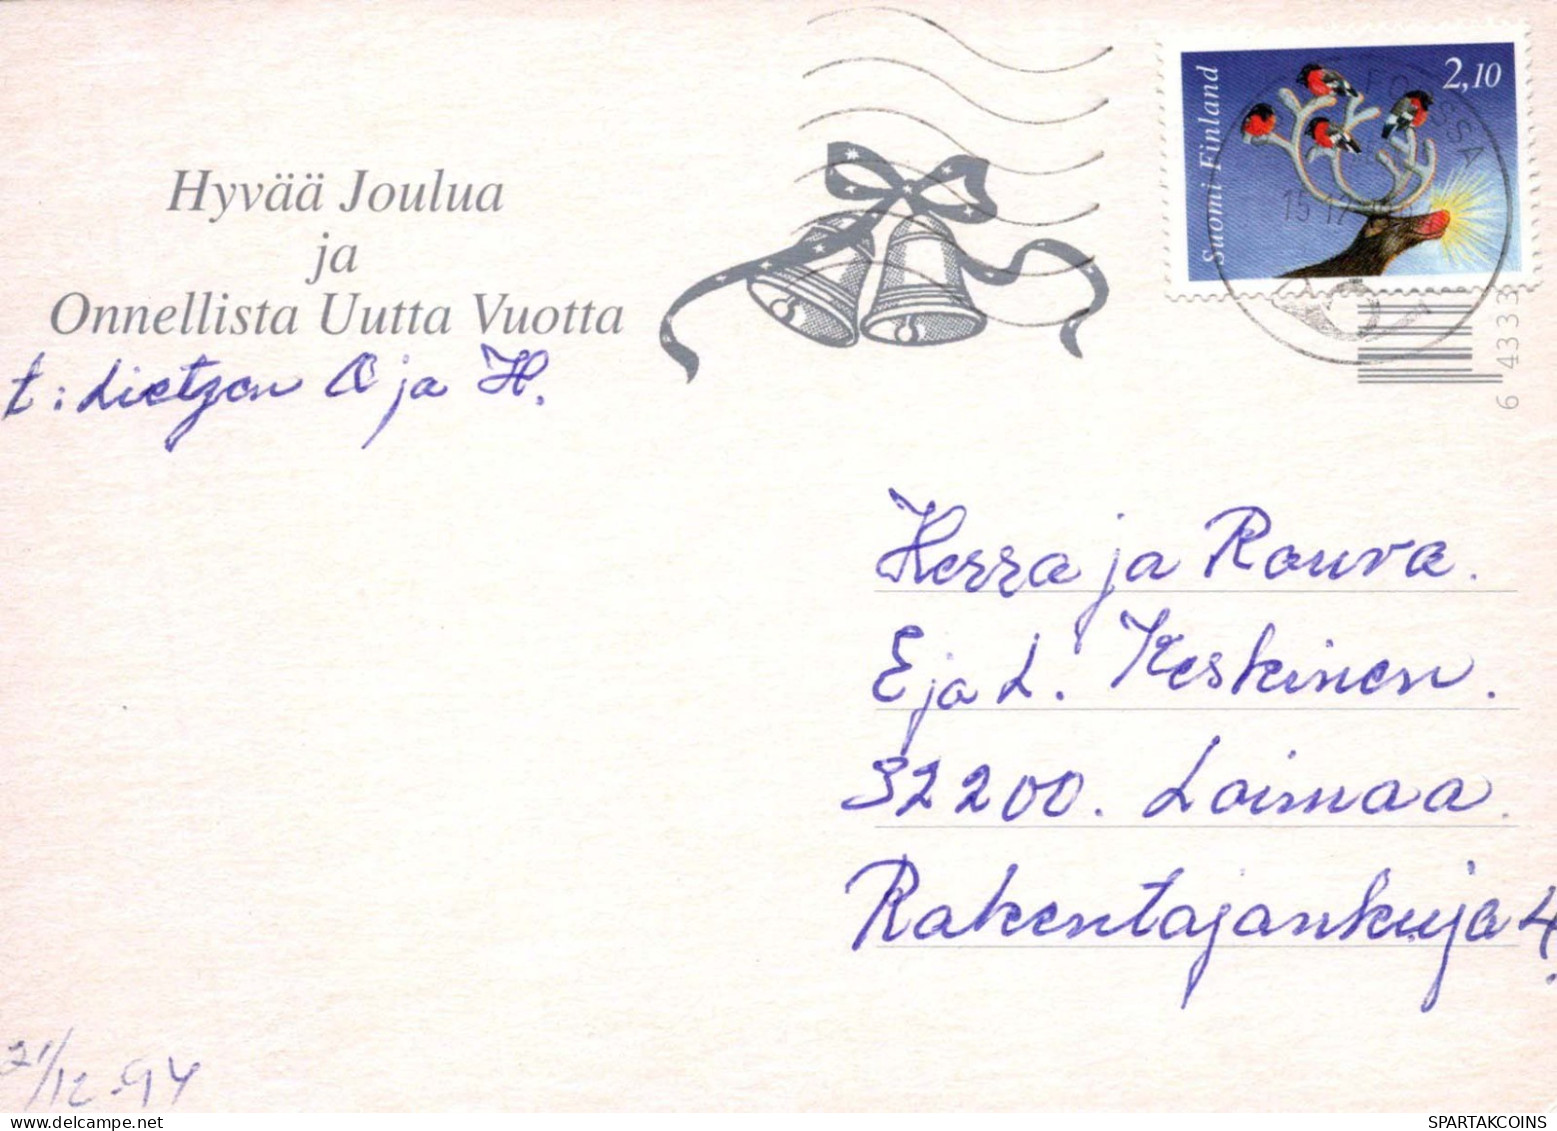 Hyvää Joulua
ja
Onnellista Uutta Vuotta
t: Lietzen O ja H.
Suomi Finland
2,10
FORSSA
15 12
6 4333
Herra ja Rouva.
E ja L. Keskinen.
32200. Loimaa.
Rakentajankuja 4.
21/12-94
SPARTAKCOINS